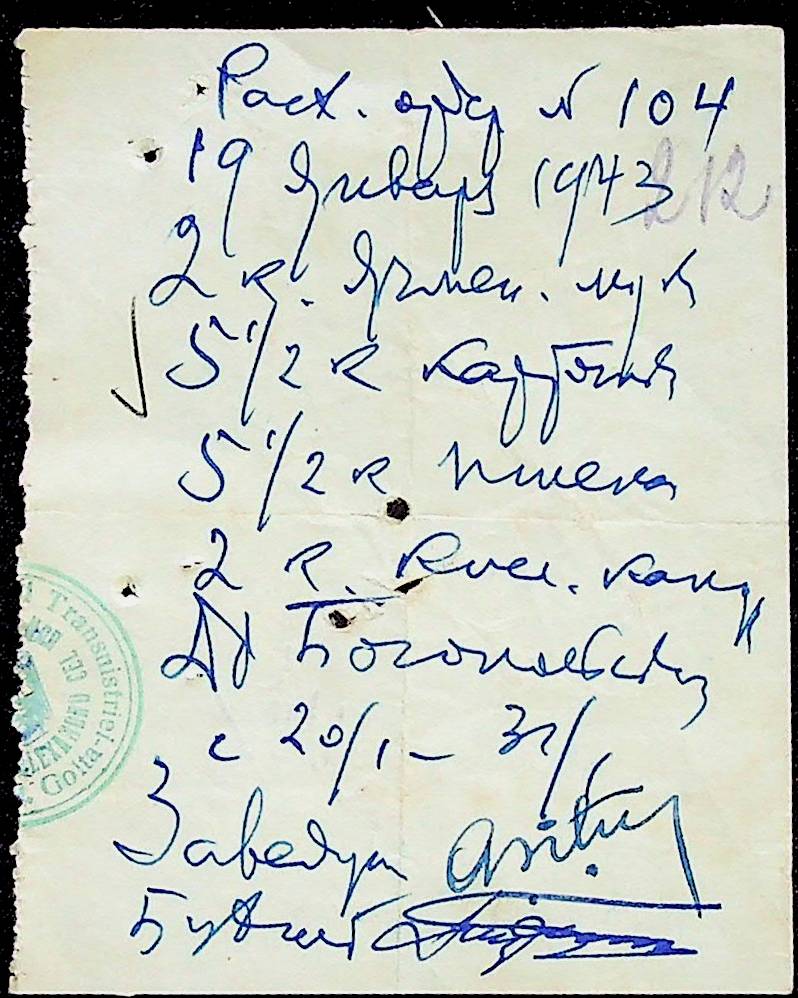 Расх. орд N 104
19 Января 1943
212
2 к. Ячмен. мук
5 1/2 к картошк
5 1/2 к пшена
2 к. Квсш. капу
Дд Богомольск
с 20/I – 31/I
Заведущ
Бухгалт
Transnistriei
Golta